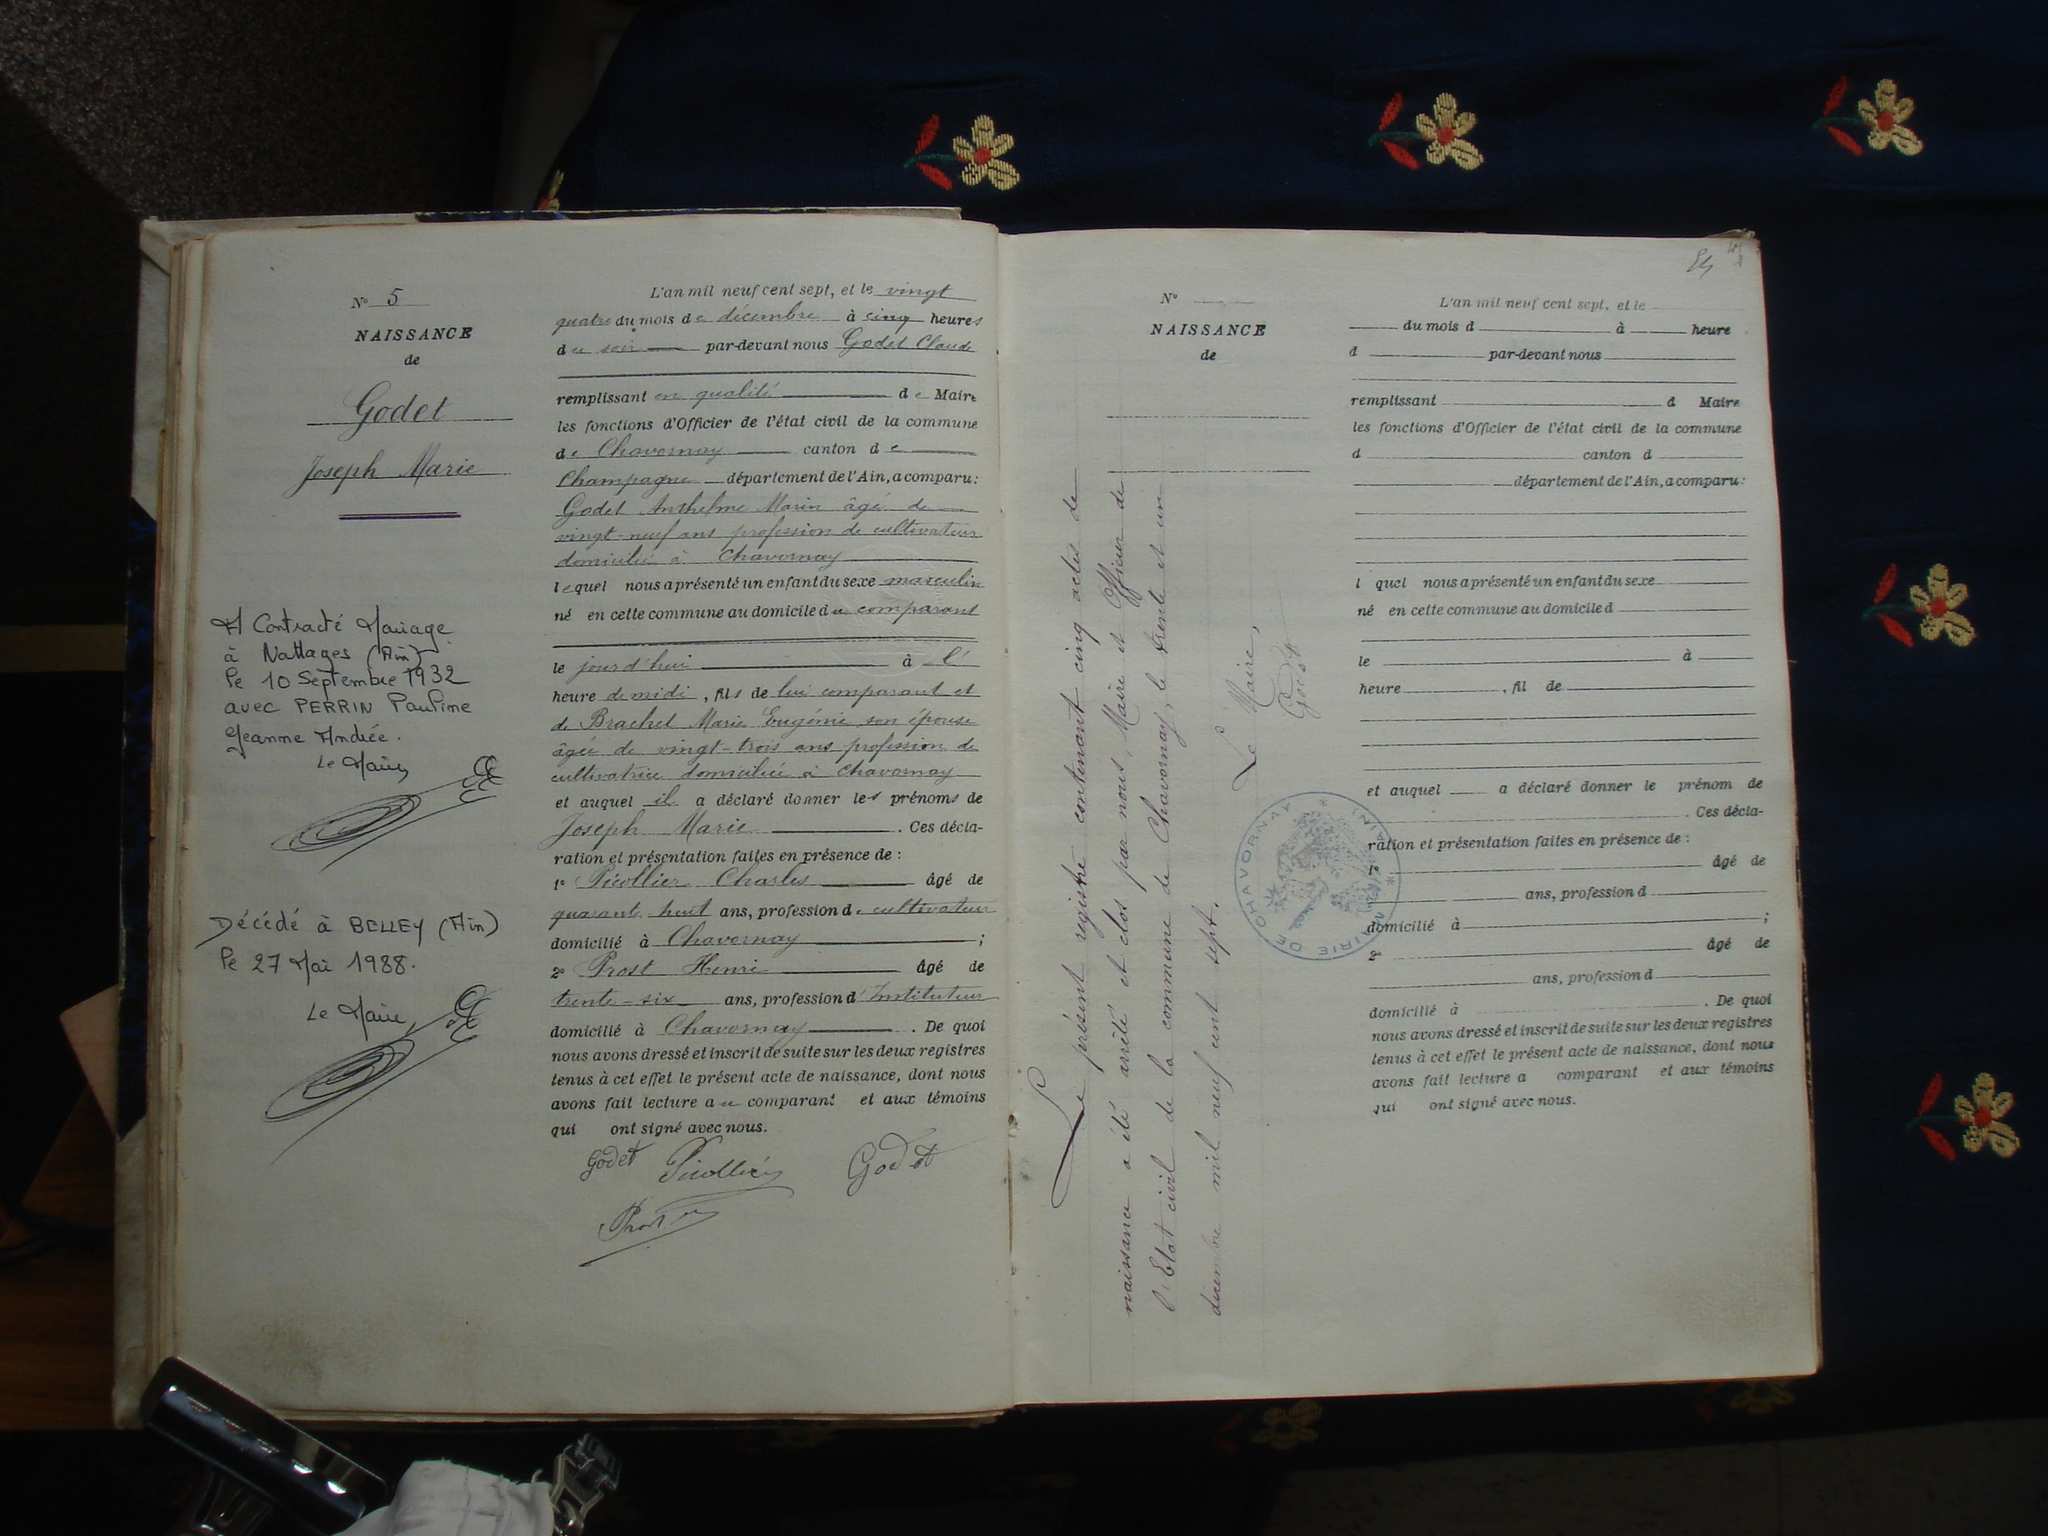 N° 5
NAISSANCE
de
Godet
Joseph Marie
A Contracté Mariage
à Nattages (Ain)
le 10 Septembre 1932
avec PERRIN Pauline
Jeanne Andrée.
Le Maire
Décédé à BELLEY (Ain)
le 27 Mai 1988.
Le Maire,
L'an mil neuf cent sept, et le vingt
quatre du mois de décembre à cinq heures
du soir par-devant nous Godet Claude
remplissant en qualité de Maire
les fonctions d'Officier de l'état civil de la commune
de Chavornay canton de
Champagne département de l'Ain, a comparu:
Godet Anthelme Marin âgé de
vingt-neuf ans profession de cultivateur
domicilié à Chavornay
lequel nous a présenté un enfant du sexe masculin
né en cette commune au domicile du comparant
le jourd'hui à l'
heure de midi, fils de lui comparant et
de Brachet Marie Eugénie son épouse
âgée de vingt-trois ans profession de
cultivatrice domiciliée à Chavornay
et auquel il a déclaré donner les prénoms de
Joseph Marie. Ces décla-
ration et présentation faites en présence de :
1° Picollier Charles âgé de
quarant huit ans, profession de cultivateur
domicilié à Chavornay ;
2° Prost Henri âgé de
trente-six ans, profession d'Instituteur
domicilié à Chavornay. De quoi
nous avons dressé et inscrit de suite sur les deux registres
tenus à cet effet le présent acte de naissance, dont nous
avons fait lecture au comparant et aux témoins
qui ont signé avec nous.
Godet Picollier Godet
Prost
N°
NAISSANCE
de
Le présent registre contenant cinq actes de
naissance a été arrêté et clos par nous, Maire et Officier de
l'Etat civil de la commune de Chavornay, le trente et un
décembre mil neuf cent sept.
Le Maire,
Godet
MAIRIE DE CHAVORNAY * (AIN) *
L'an mil neuf cent sept, et le
du mois d à heure
d par-devant nous
remplissant d Maire
les fonctions d'Officier de l'état civil de la commune
d canton d
département de l'Ain, a comparu:
l quel nous a présenté un enfant du sexe
né en cette commune au domicile d
le à
heure , fil de
et auquel a déclaré donner le prénom de
. Ces décla-
ration et présentation faites en présence de :
1° âgé de
ans, profession d
domicilié à ;
2° âgé de
ans, profession d
domicilié à . De quoi
nous avons dressé et inscrit de suite sur les deux registres
tenus à cet effet le présent acte de naissance, dont nous
avons fait lecture a comparant et aux témoins
qui ont signé avec nous.